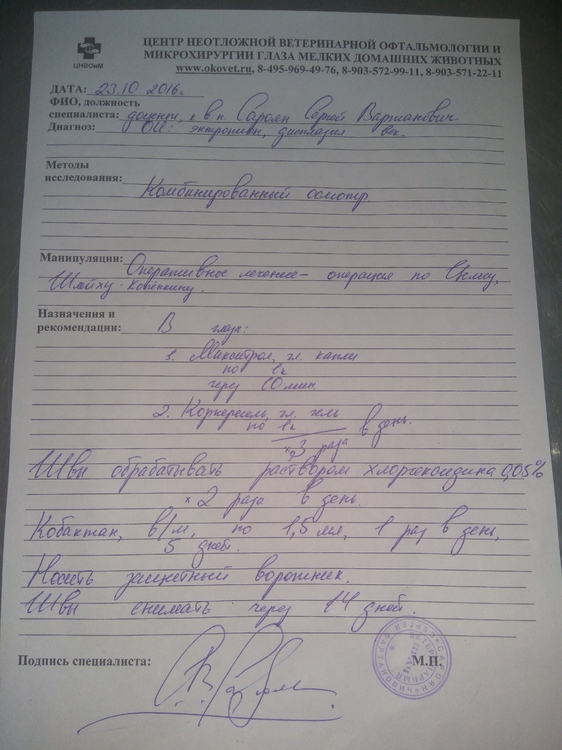 ЦНВОиМ
ЦЕНТР НЕОТЛОЖНОЙ ВЕТЕРИНАРНОЙ ОФТАЛЬМОЛОГИИ И
МИКРОХИРУРГИИ ГЛАЗА МЕЛКИХ ДОМАШНИХ ЖИВОТНЫХ
www.okovet.ru, 8-495-969-49-76, 8-903-572-99-11, 8-903-571-22-11
ДАТА: 23.10.2016г
ФИО, должность
специалиста: доцент, к в н. Сароян Сергей Вартанович
Диагноз: OU: энтропион, дисплазия век.
Методы
исследования: Комбинированный осмотр
Манипуляции: Оперативное лечение - операция по
Шляйху-Ковенкину.
Назначения и
рекомендации: В глаза:
1. Макситрол, гл. капли
по 1к
через 10 мин
2. Корнерегель, гл. гель
по 1к
x 3 раза в день.
Швы обрабатывать раствором хлоргексидина 0,05%
x 2 раза в день.
Кобактан, в/м, по 1,5 мл, 1 раз в день,
5 дней.
Носить защитный воротник.
Швы снимать через 14 дней.
Подпись специалиста:
М.П.